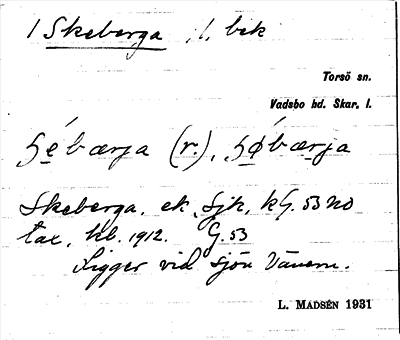 1 Skeberga, l. bek
Torsö sn.
Vadsbo hd. Skar. l.
ʃébærja (r.), ʃǿbærja
Skeberga, ek, Sjk, kG. 53 no
tax, hb. 1912. G. 53
Ligger vid sjön Vänern.
L. MADSÉN 1931